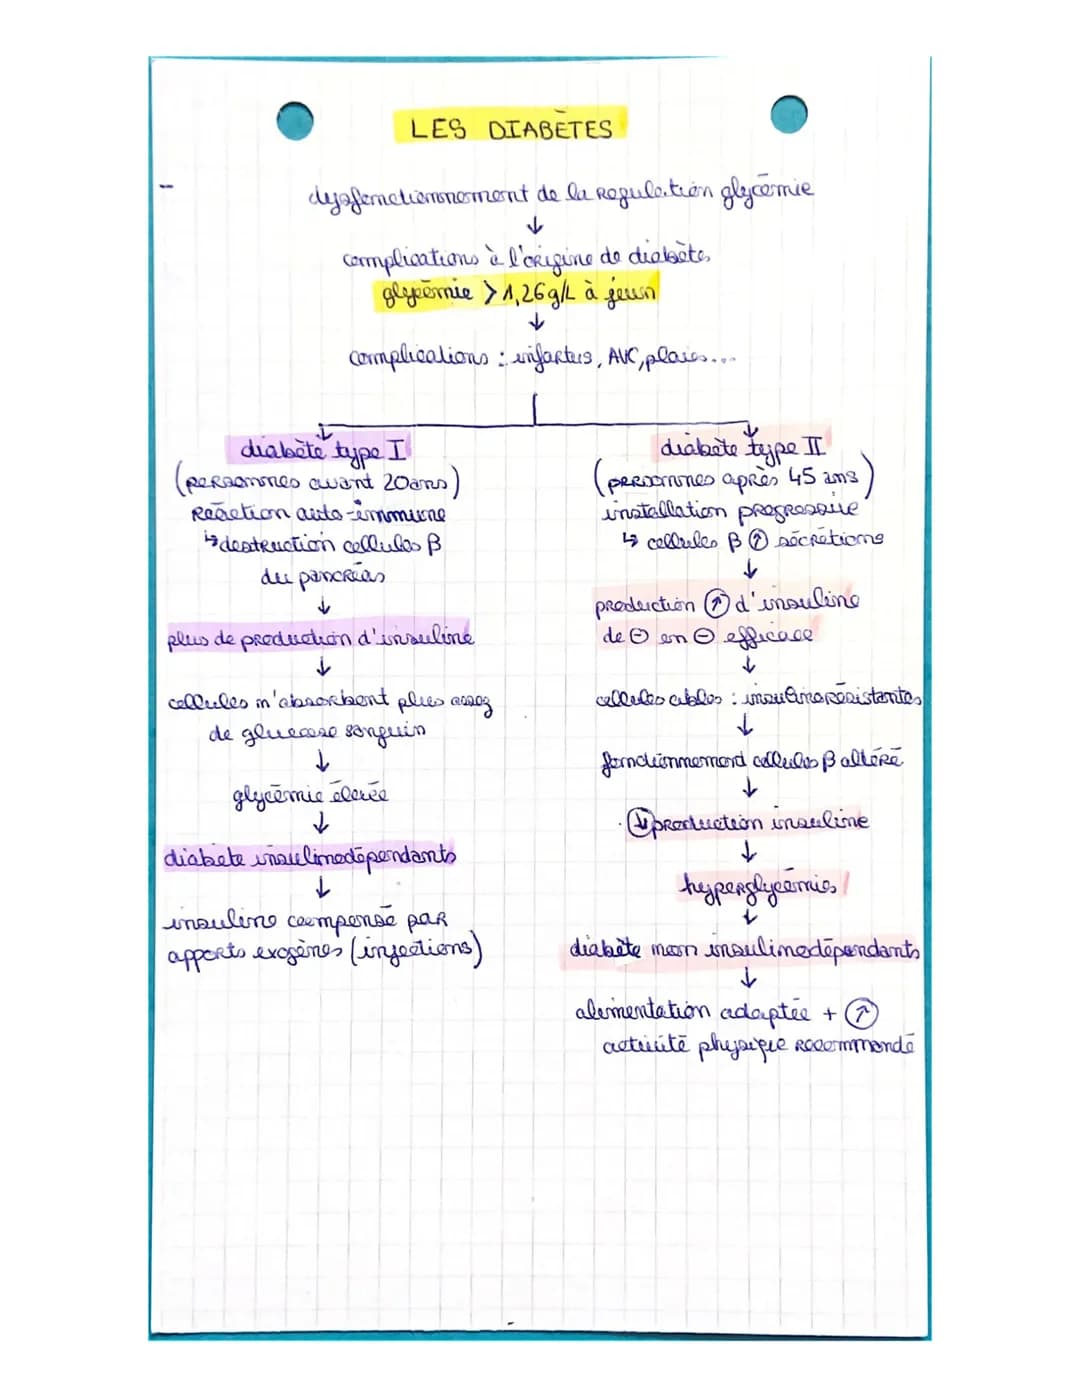 LES DIABÈTES
dysfonctionnement de la régulation glycémie
↓
complications à l'origine de diabètes
glycémie > 1,26 g/L à jeun
↓
complications : infarctus, AVC, plaies...
diabète type I
(personnes avant 20ans)
Réaction auto-immune
↳ destruction cellules β
du pancréas
↓
plus de production d'insuline
↓
cellules n'absorbent plus assez
de glucose sanguin
↓
glycémie élevée
↓
diabète insulinodépendants
↓
insuline compensé par
apports exogènes (injections)
diabète type II
(personnes après 45 ans)
installation progressive
↳ cellules β ↑ sécrétions
↓
production ↑ d'insuline
de ⊖ en ⊖ efficace
↓
cellules cibles : insulinorésistantes
↓
fonctionnement cellules β altéré
↓
↓ production insuline
↓
hyperglycémies
↓
diabète non insulinodépendants
↓
alimentation adaptée + ↑
activité physique recommandé